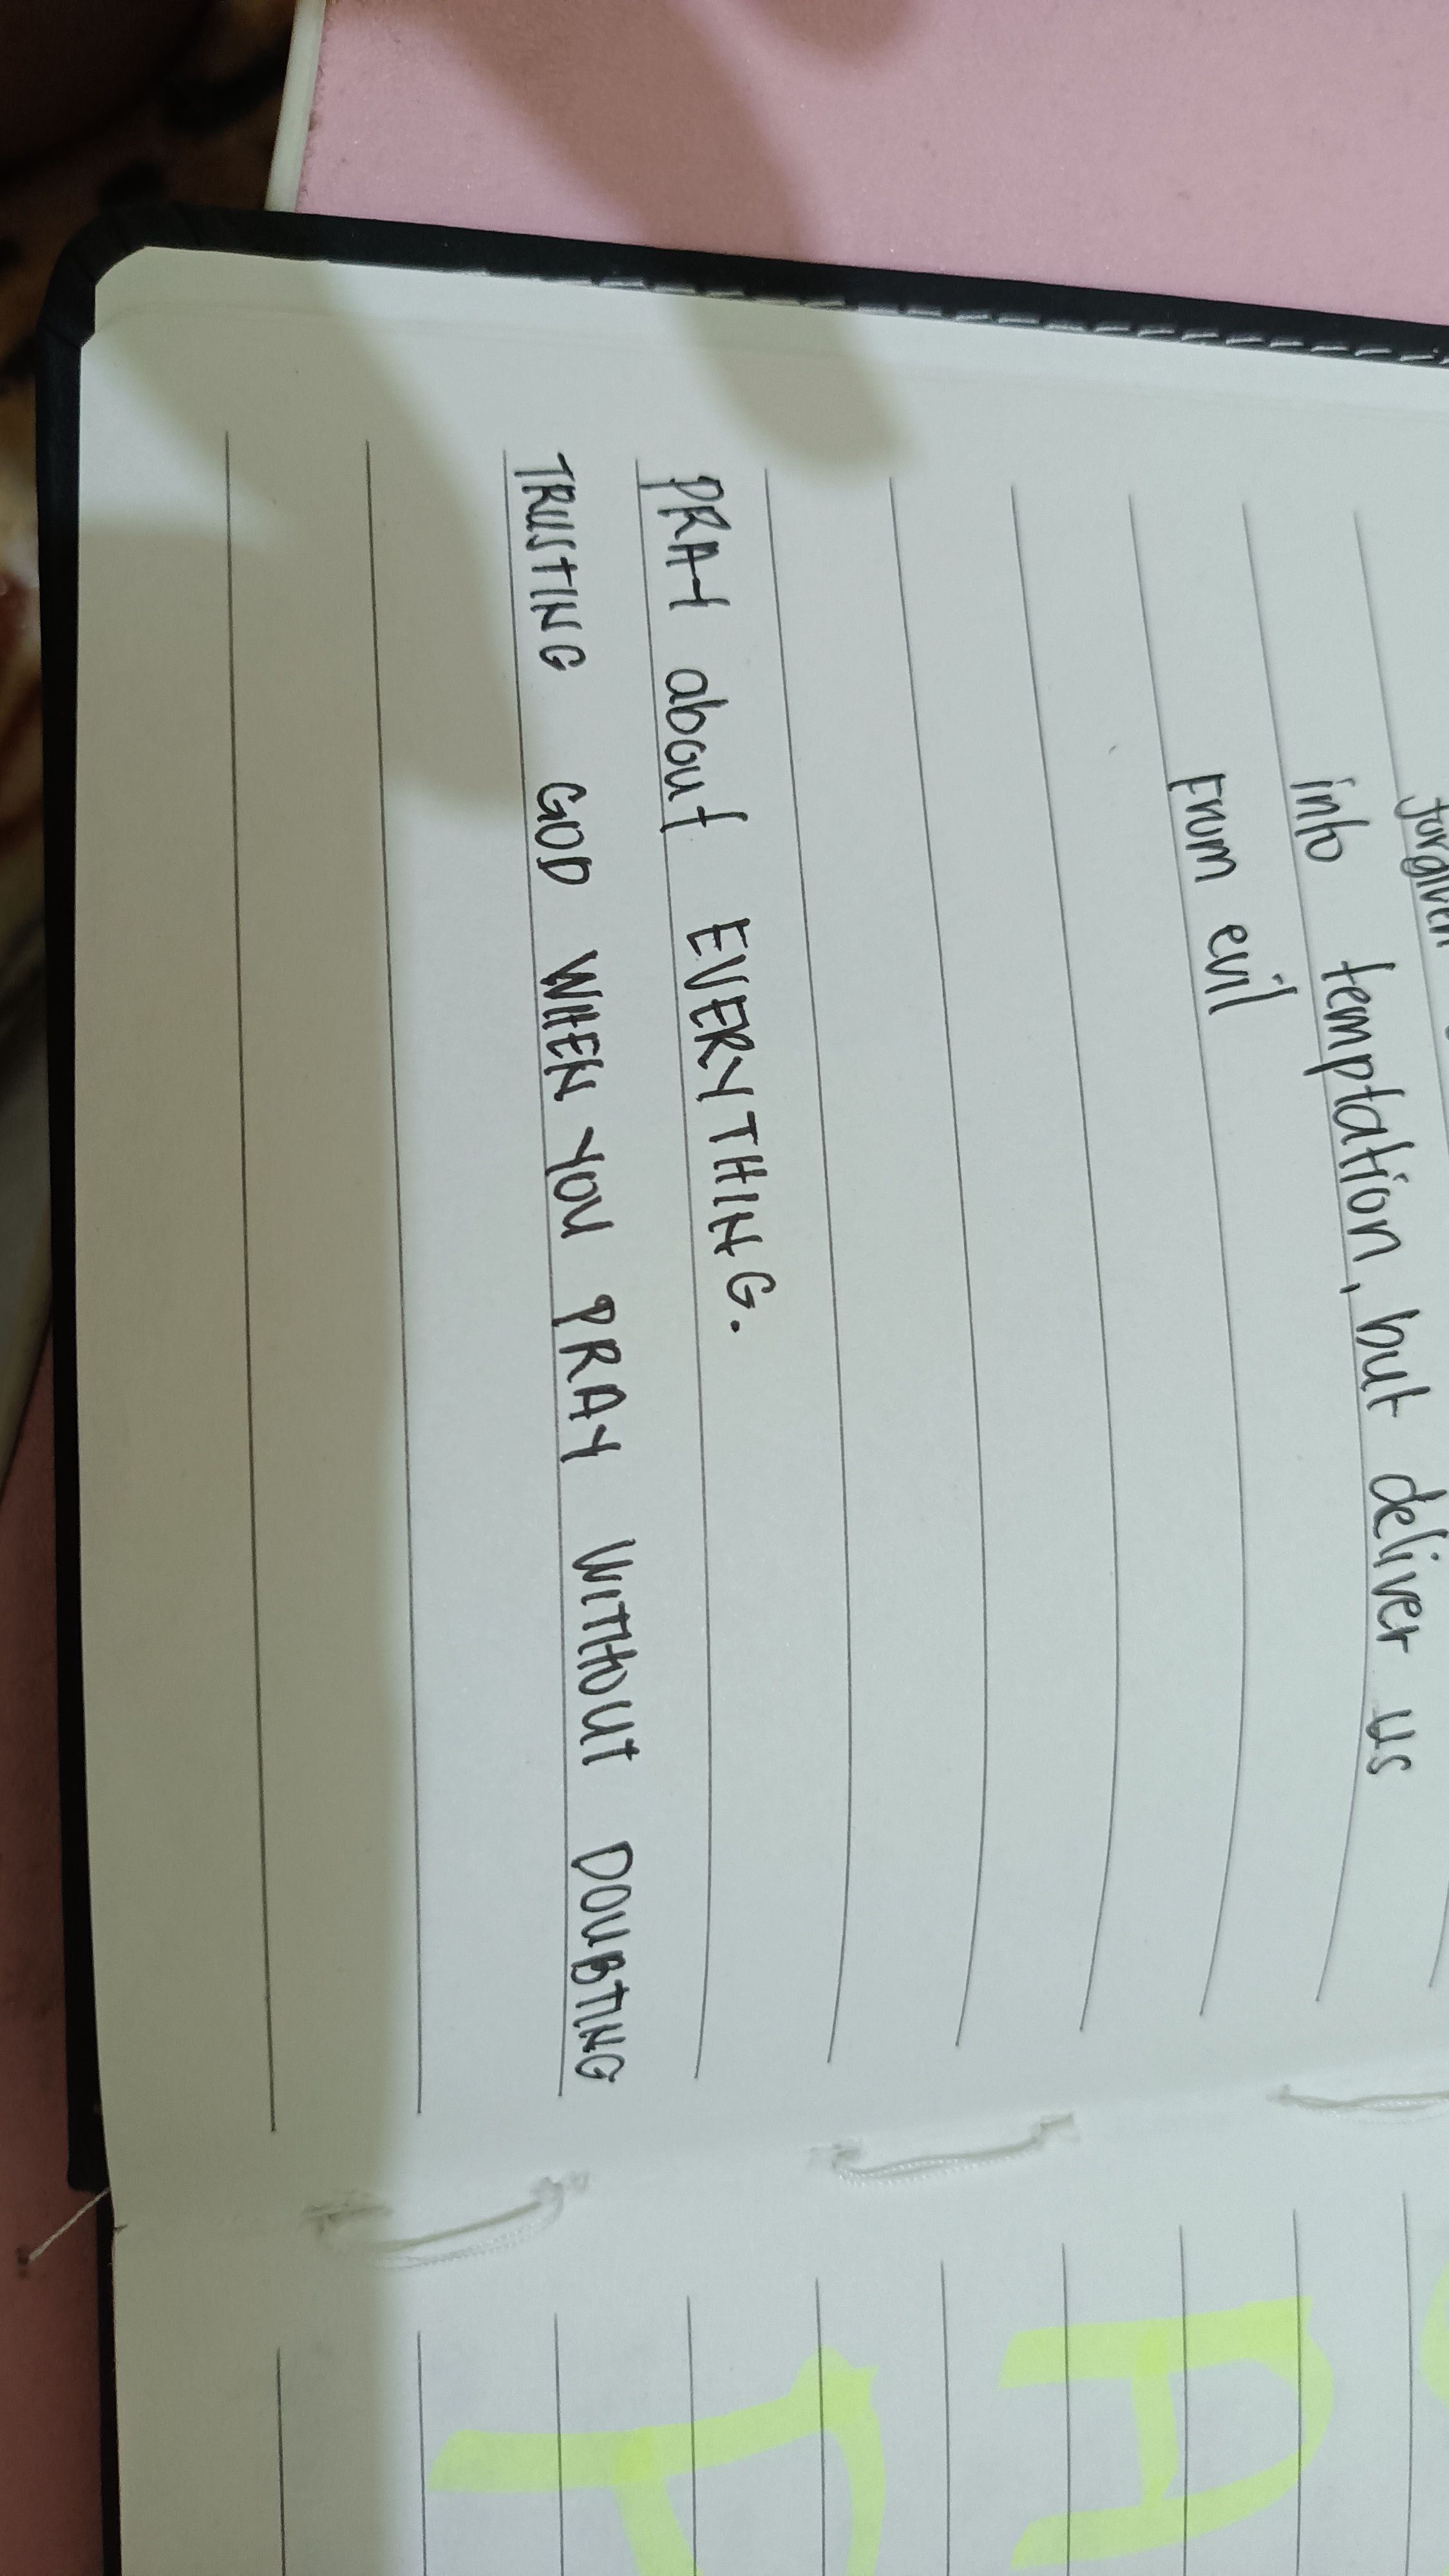 forgiven
into temptation, but deliver us
From evil
PRAY about EVERYTHING.
TRUSTING GOD WHEN YOU PRAY WITHOUT DOUBTING